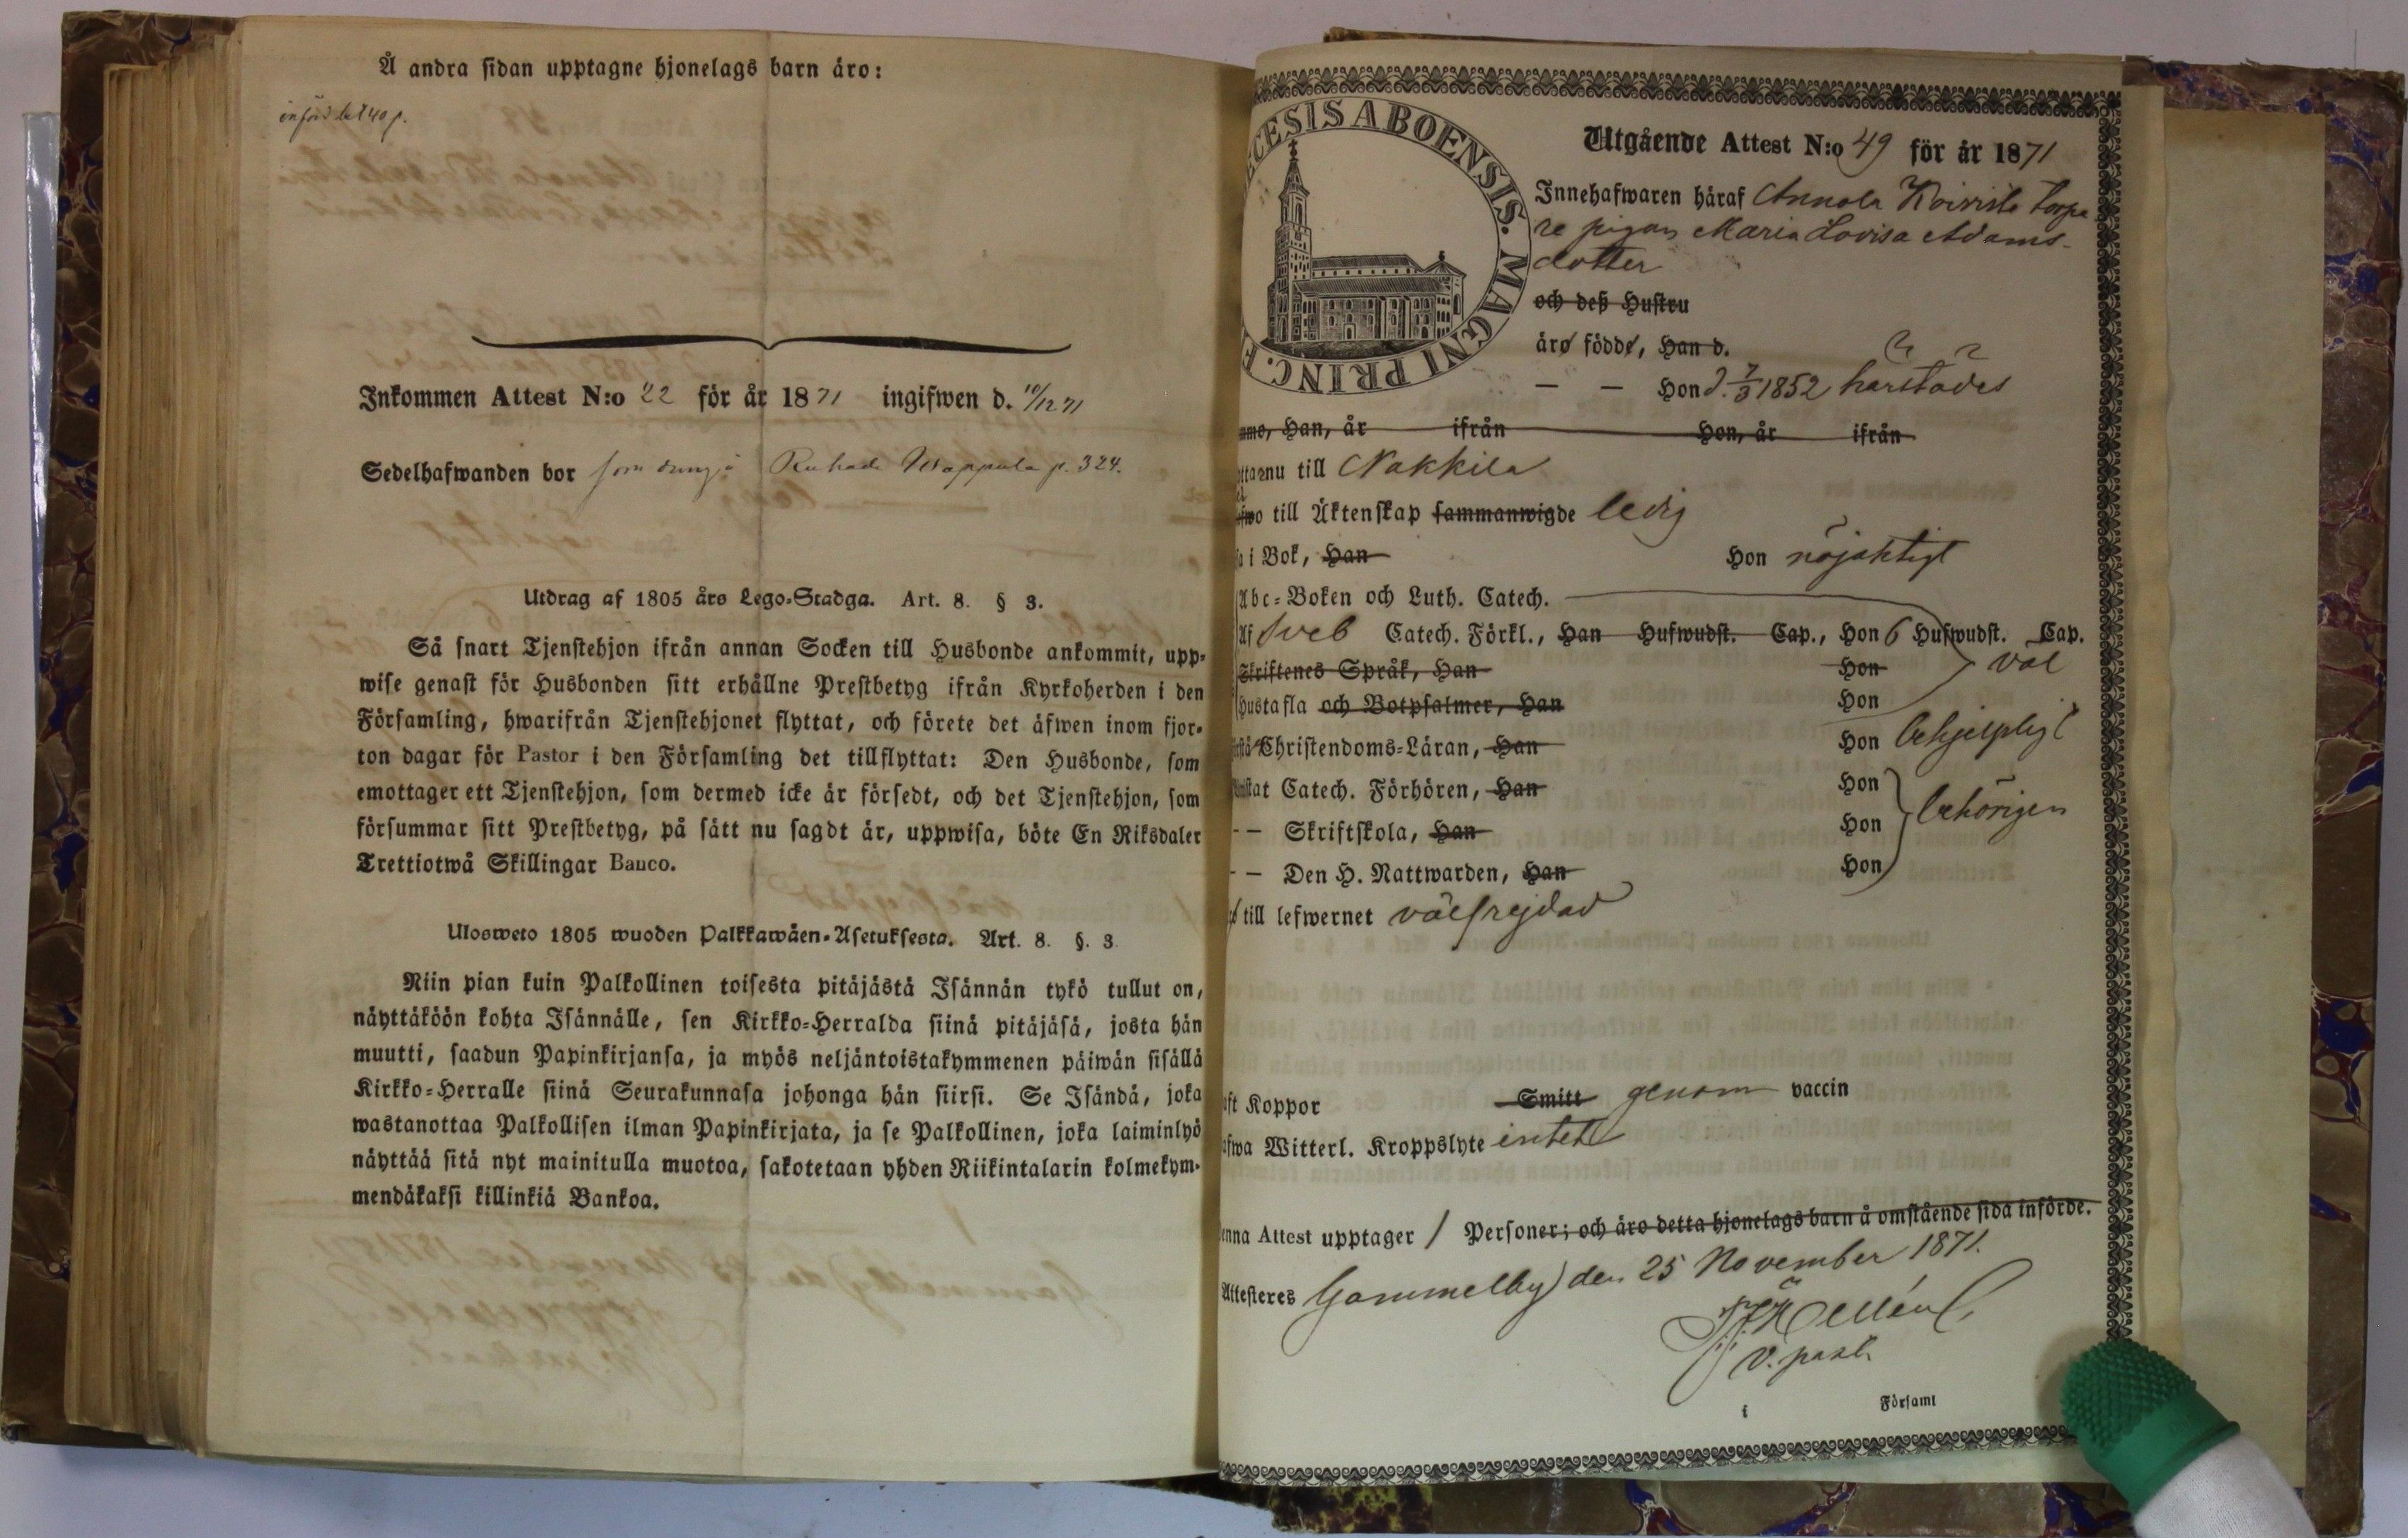 Å andra sidan upptagne hjonelags barn äro:
införd
Inkommen Attest N:o 22 för år 1871 ingifwen d. 10/12 71
Sedelhafwanden bor som dräng å p. 324.
Utdrag af 1805 års Lego-Stadga. Art. 8. § 3.
Så snart Tjenstehjon ifrån annan Socken till Husbonde ankommit, upp-
wise genast för Husbonden sitt erhållne Prestbetyg ifrån Kyrkoherden i den
Församling, hwarifrån Tjenstehjonet flyttat, och förete det äfwen inom fjor-
ton dagar för Pastor i den Församling det tillflyttat: Den Husbonde, som
emottager ett Tjenstehjon, som dermed icke är försedt, och det Tjenstehjon, som
försummar sitt Prestbetyg, på sätt nu sagdt är, uppwisa, böte En Riksdaler
Trettiotwå Skillingar Banco.
Ulosweto 1805 wuoden Palkkawäen-Asetuksesta. Art. 8. §. 3.
Niin pian kuin Palkollinen toisesta pitäjästä Isännän tykö tullut on,
näyttäköön kohta Isännälle, sen Kirkko-Herralda siinä pitäjäsä, josta hän
muutti, saadun Papinkirjansa, ja myös neljäntoistakymmenen päiwän sisällä
Kirkko-Herralle siinä Seurakunnasa johonga hän siirsi. Se Isändä, joka
wastanottaa Palkollisen ilman Papinkirjata, ja se Palkollinen, joka laiminlyö
näyttää sitä nyt mainitulla muotoa, sakotetaan yhden Riikintalarin kolmekym-
mendäkaksi killinkiä Bankoa.
ECESIS ABOENSIS. MAGNI PRINC. F
Utgående Attest N:o 49 för år 1871
Innehafwaren häraf Annola Koivisto torpa
re pigan Maria Lovisa Adams-
dotter
och deß Hustru
äro födde, Han d.
— — Hon d. 7/3 1852 härstädes
mmo, Han, år ifrån Hon, år ifrån
ttar nu till Nakkila
fwo till Äktenskap sammanwigde ledig
a i Bok, Han Hon nöjaktigt
Abc-Boken och Luth. Catech.
Af Sveb Catech. Förkl., Han Hufwudst. Cap., Hon 6 Hufwudst. Cap.
Skriftenes Språk, Han Hon väl
Hustafla och Botpsalmer, Han Hon
Christendoms-Läran, Han Hon behjelpligt
stat Catech. Förhören, Han Hon
— Skriftskola, Han Hon behörigen
— Den H. Nattwarden, Han Hon
till lefwernet välfrejdad
ft Koppor Smitt genom vaccin
fwa Witterl. Kroppslyte intet
enna Attest upptager 1 Personer; och äro detta hjonelags barn å omstående sida införde.
Attesteres Gammelby den 25 November 1871.
v. past.
i Församl